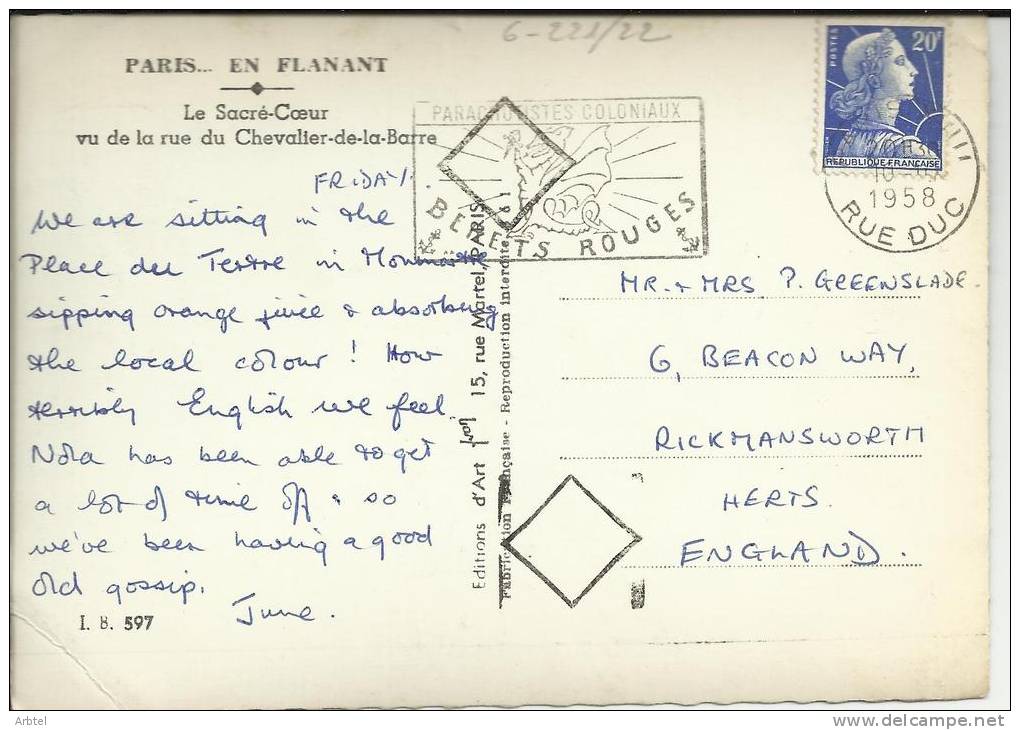 6-221/22
PARIS... EN FLANANT
Le Sacré-Cœur
vu de la rue du Chevalier-de-la-Barre
FRIDAY.
We are sitting in the
Place du Tertre in Monmartre
sipping orange juice & absorbing
the local colour! How
terribly English we feel.
Nola has been able to get
a lot of time off & so
we've been having a good
old gossip.
June.
I. B. 597
PARACHUTISTES COLONIAUX
BERETS ROUGES
POSTES
20F
REPUBLIQUE FRANÇAISE
1958
RUE DUC
Editions d'Art 15, rue Martel, PARIS
Fabrication Française - Reproduction interdite
MR. & MRS P. GREENSLADE.
6, BEACON WAY,
RICKMANSWORTH
HERTS.
ENGLAND.
Arbtel
delcampe.net